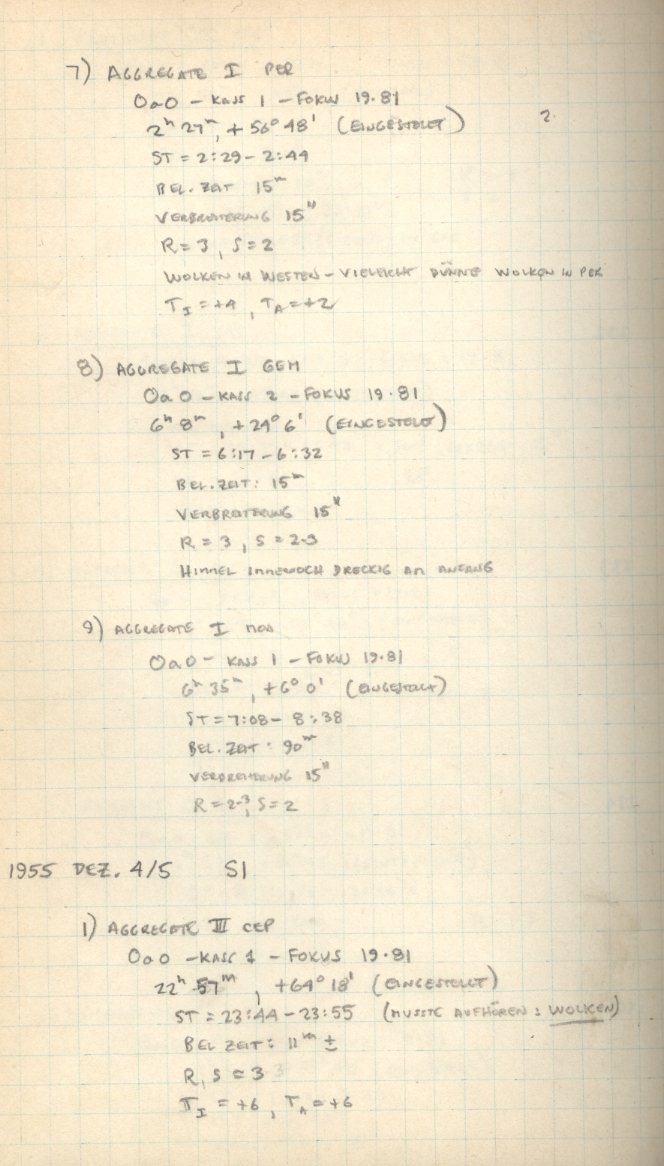 7) AGGREGATE I PER
OaO - KASS 1 - FOKUS 19.81
2ʰ 27ᵐ, +56° 48' (EINGESTELLT) 2.
ST = 2:29 - 2:44
BEL. ZEIT 15ᵐ
VERBREITERUNG 15"
R = 3, S = 2
WOLKEN IM WESTEN - VIELEICHT DÜNNE WOLKEN IN PER
T_I = +4, T_A = +2
8) AGGREGATE I GEM
OaO - KASS 2 - FOKUS 19.81
6ʰ 8ᵐ, +24° 6' (EINGESTELLT)
ST = 6:17 - 6:32
BEL. ZEIT: 15ᵐ
VERBREITERUNG 15"
R = 3, S = 2-3
HIMMEL IMMENOCH DRECKIG AM ANFANG
9) AGGREGATE I MON
OaO - KASS 1 - FOKUS 19.81
6ʰ 35ᵐ, +6° 0' (EINGESTELLT)
ST = 7:08 - 8:38
BEL. ZEIT: 90ᵐ
VERBREITERUNG 15"
R = 2-3, S = 2
1955 DEZ. 4/5 S1
1) AGGREGATE III CEP
OaO - KASS 1 - FOKUS 19.81
22ʰ 57ᵐ, +64° 18' (EINGESTELLT)
ST = 23:44 - 23:55 (MUSSTE AUFHÖREN : WOLKEN)
BEL ZEIT: 11ᵐ ±
R, S = 3
T_I = +6, T_A = +6